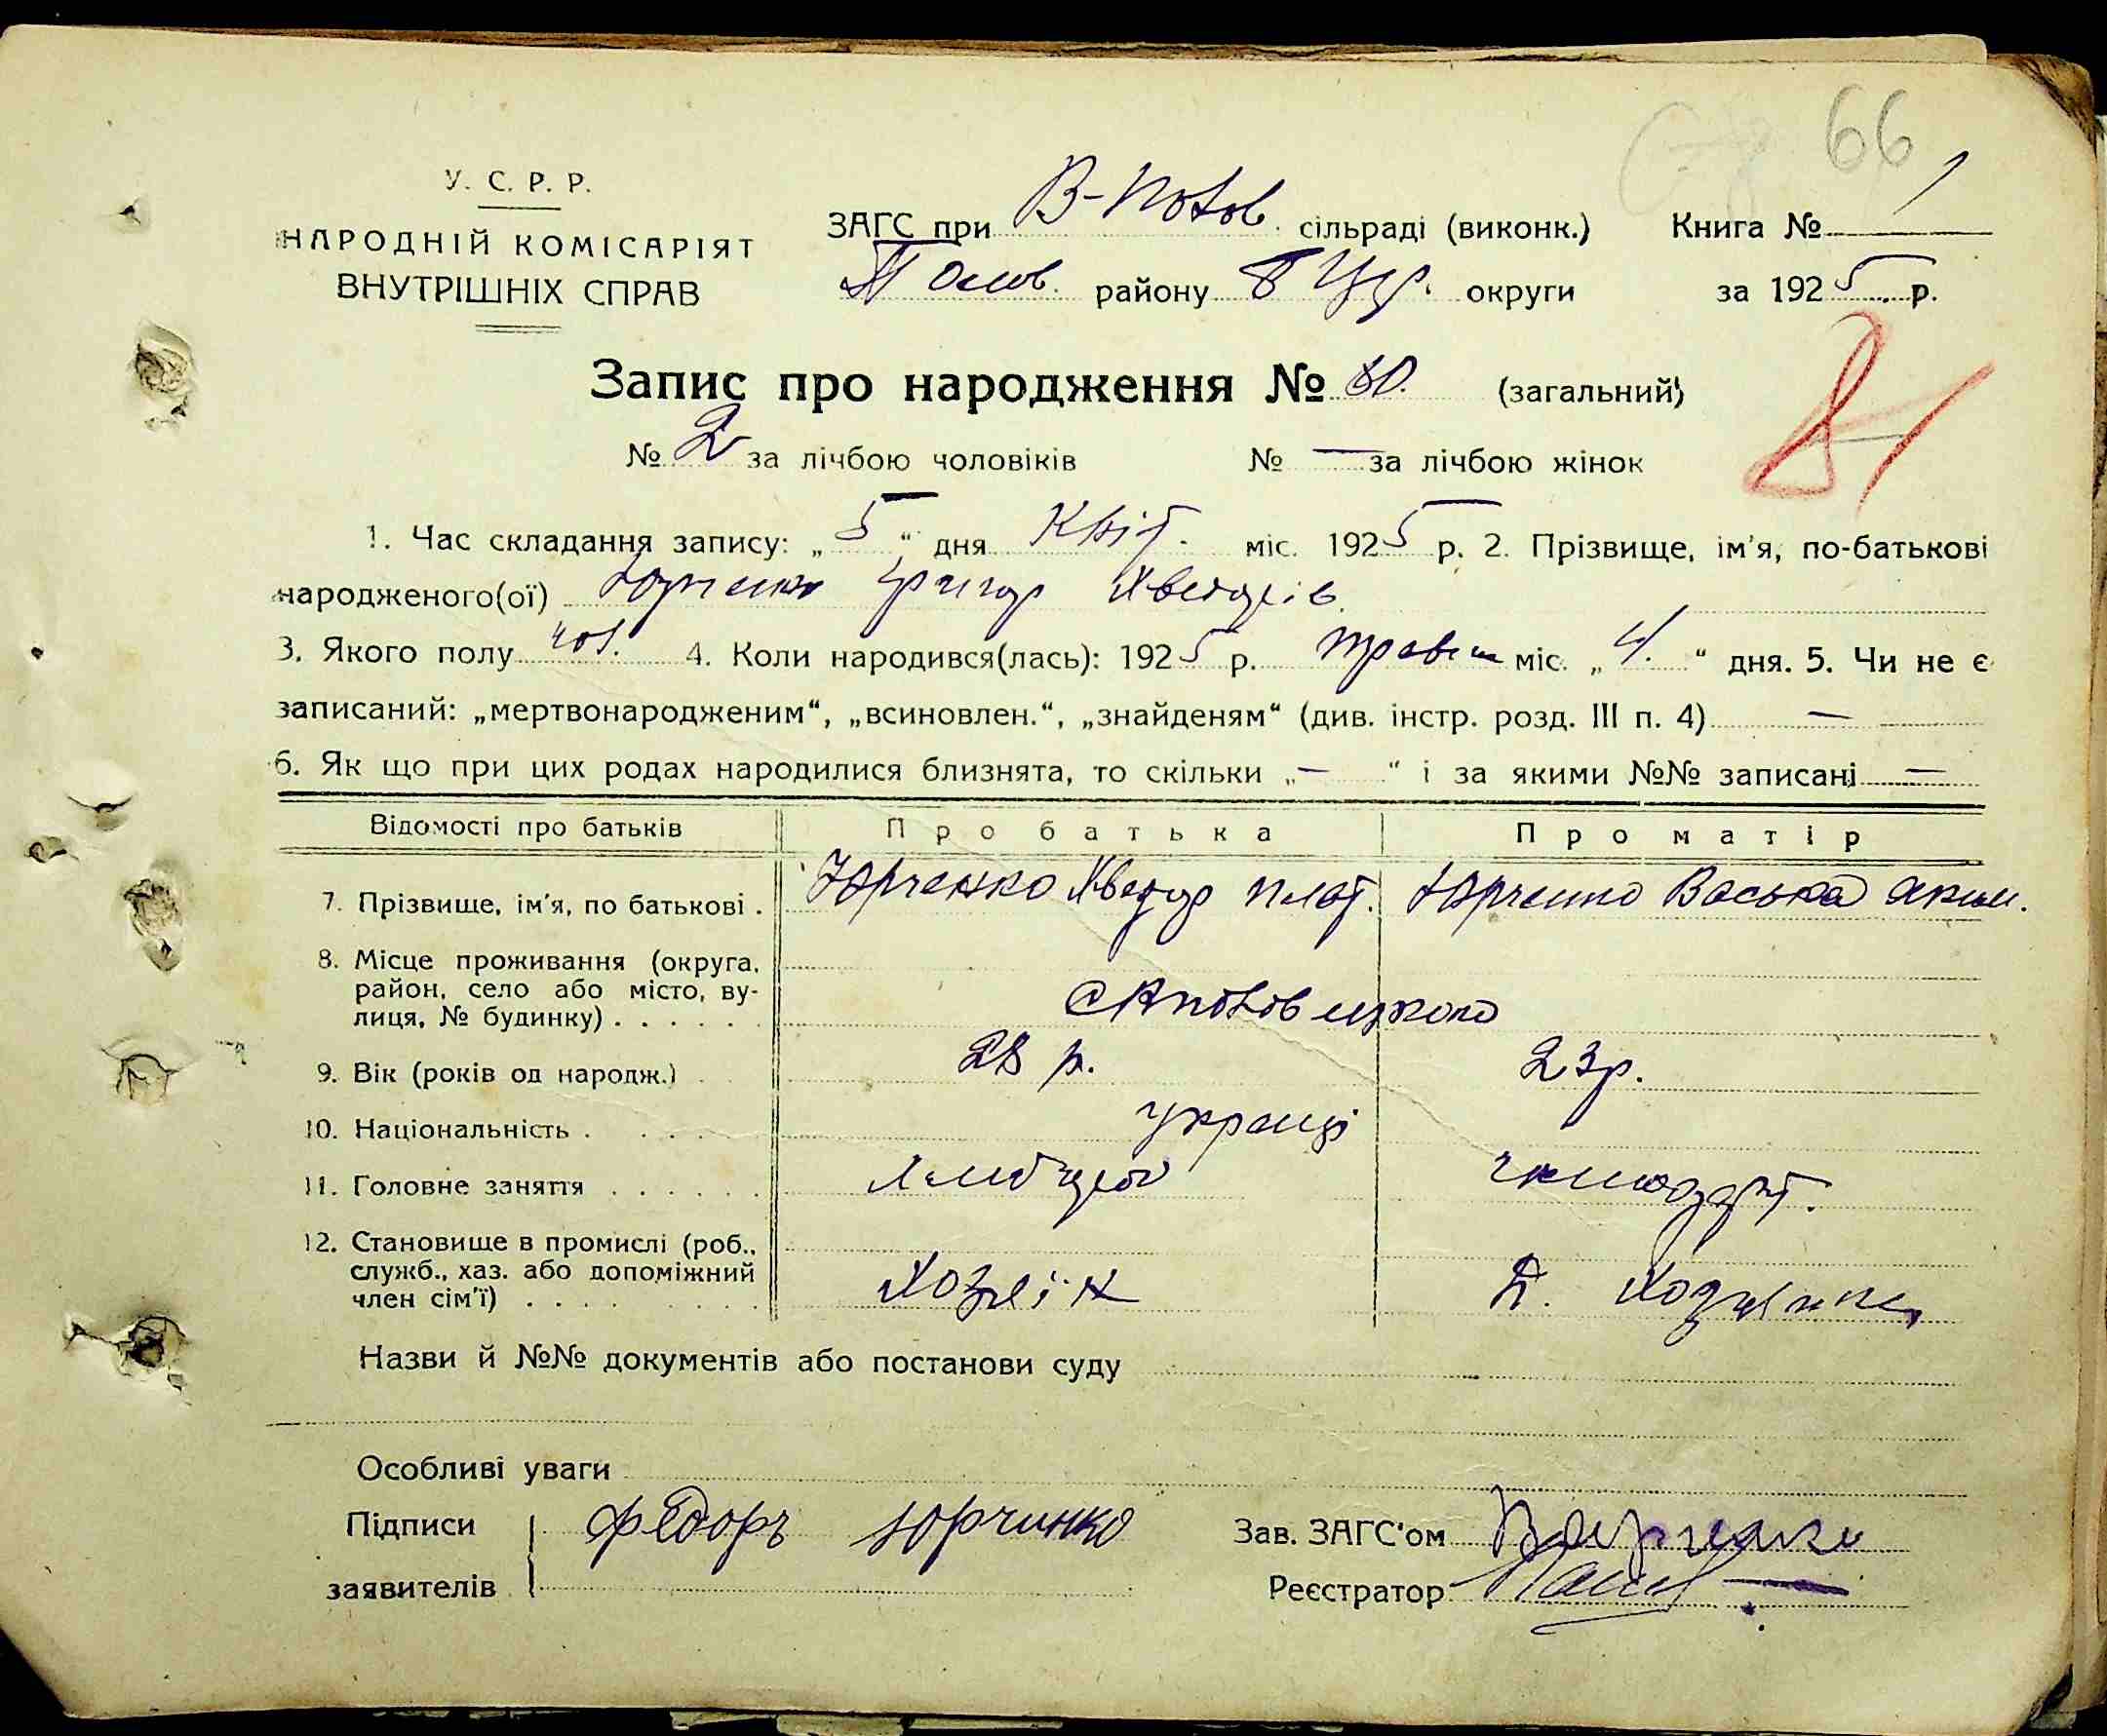 66
У. С. Р. Р.
НАРОДНІЙ КОМІСАРІЯТ
ВНУТРІШНІХ СПРАВ
ЗАГС при В-Полов. сільраді (виконк.) Книга № 1
району округи за 1925 р.
Запис про народження № 80. (загальний)
№ 2 за лічбою чоловіків № — за лічбою жінок
1. Час складання запису: „5“ дня Квіт. міс. 1925 р. 2. Прізвище, ім'я, по-батькові
народженого(ої) Юрченко Григор Хведорів.
3. Якого полу чол. 4. Коли народився(лась): 1925 р. травня міс. „4.“ дня. 5. Чи не є
записаний: „мертвонародженим“, „всиновлен.“, „знайденям“ (див. інстр. розд. III п. 4) —
6. Як що при цих родах народилися близнята, то скільки „—“ і за якими №№ записані —
Відомості про батьків Про батька Про матір
7. Прізвище, ім'я, по батькові . Юрченко Хведор Плат. Юрченко Васька Яким.
8. Місце проживання (округа,
район, село або місто, ву-
лиця, № будинку) . . . . . .
9. Вік (років од народж.) . 28 р. 23 р.
10. Національність . . . . . украінці
11. Головне заняття . . . . . . Хлибороб
12. Становище в промислі (роб.,
служб., хаз. або допоміжний
член сім'ї) . . . . Хозяїн Д. Хозяйки
Назви й №№ документів або постанови суду
Особливі уваги
Підписи Федоръ Юрчинко Зав. ЗАГС'ом
заявителів Реєстратор